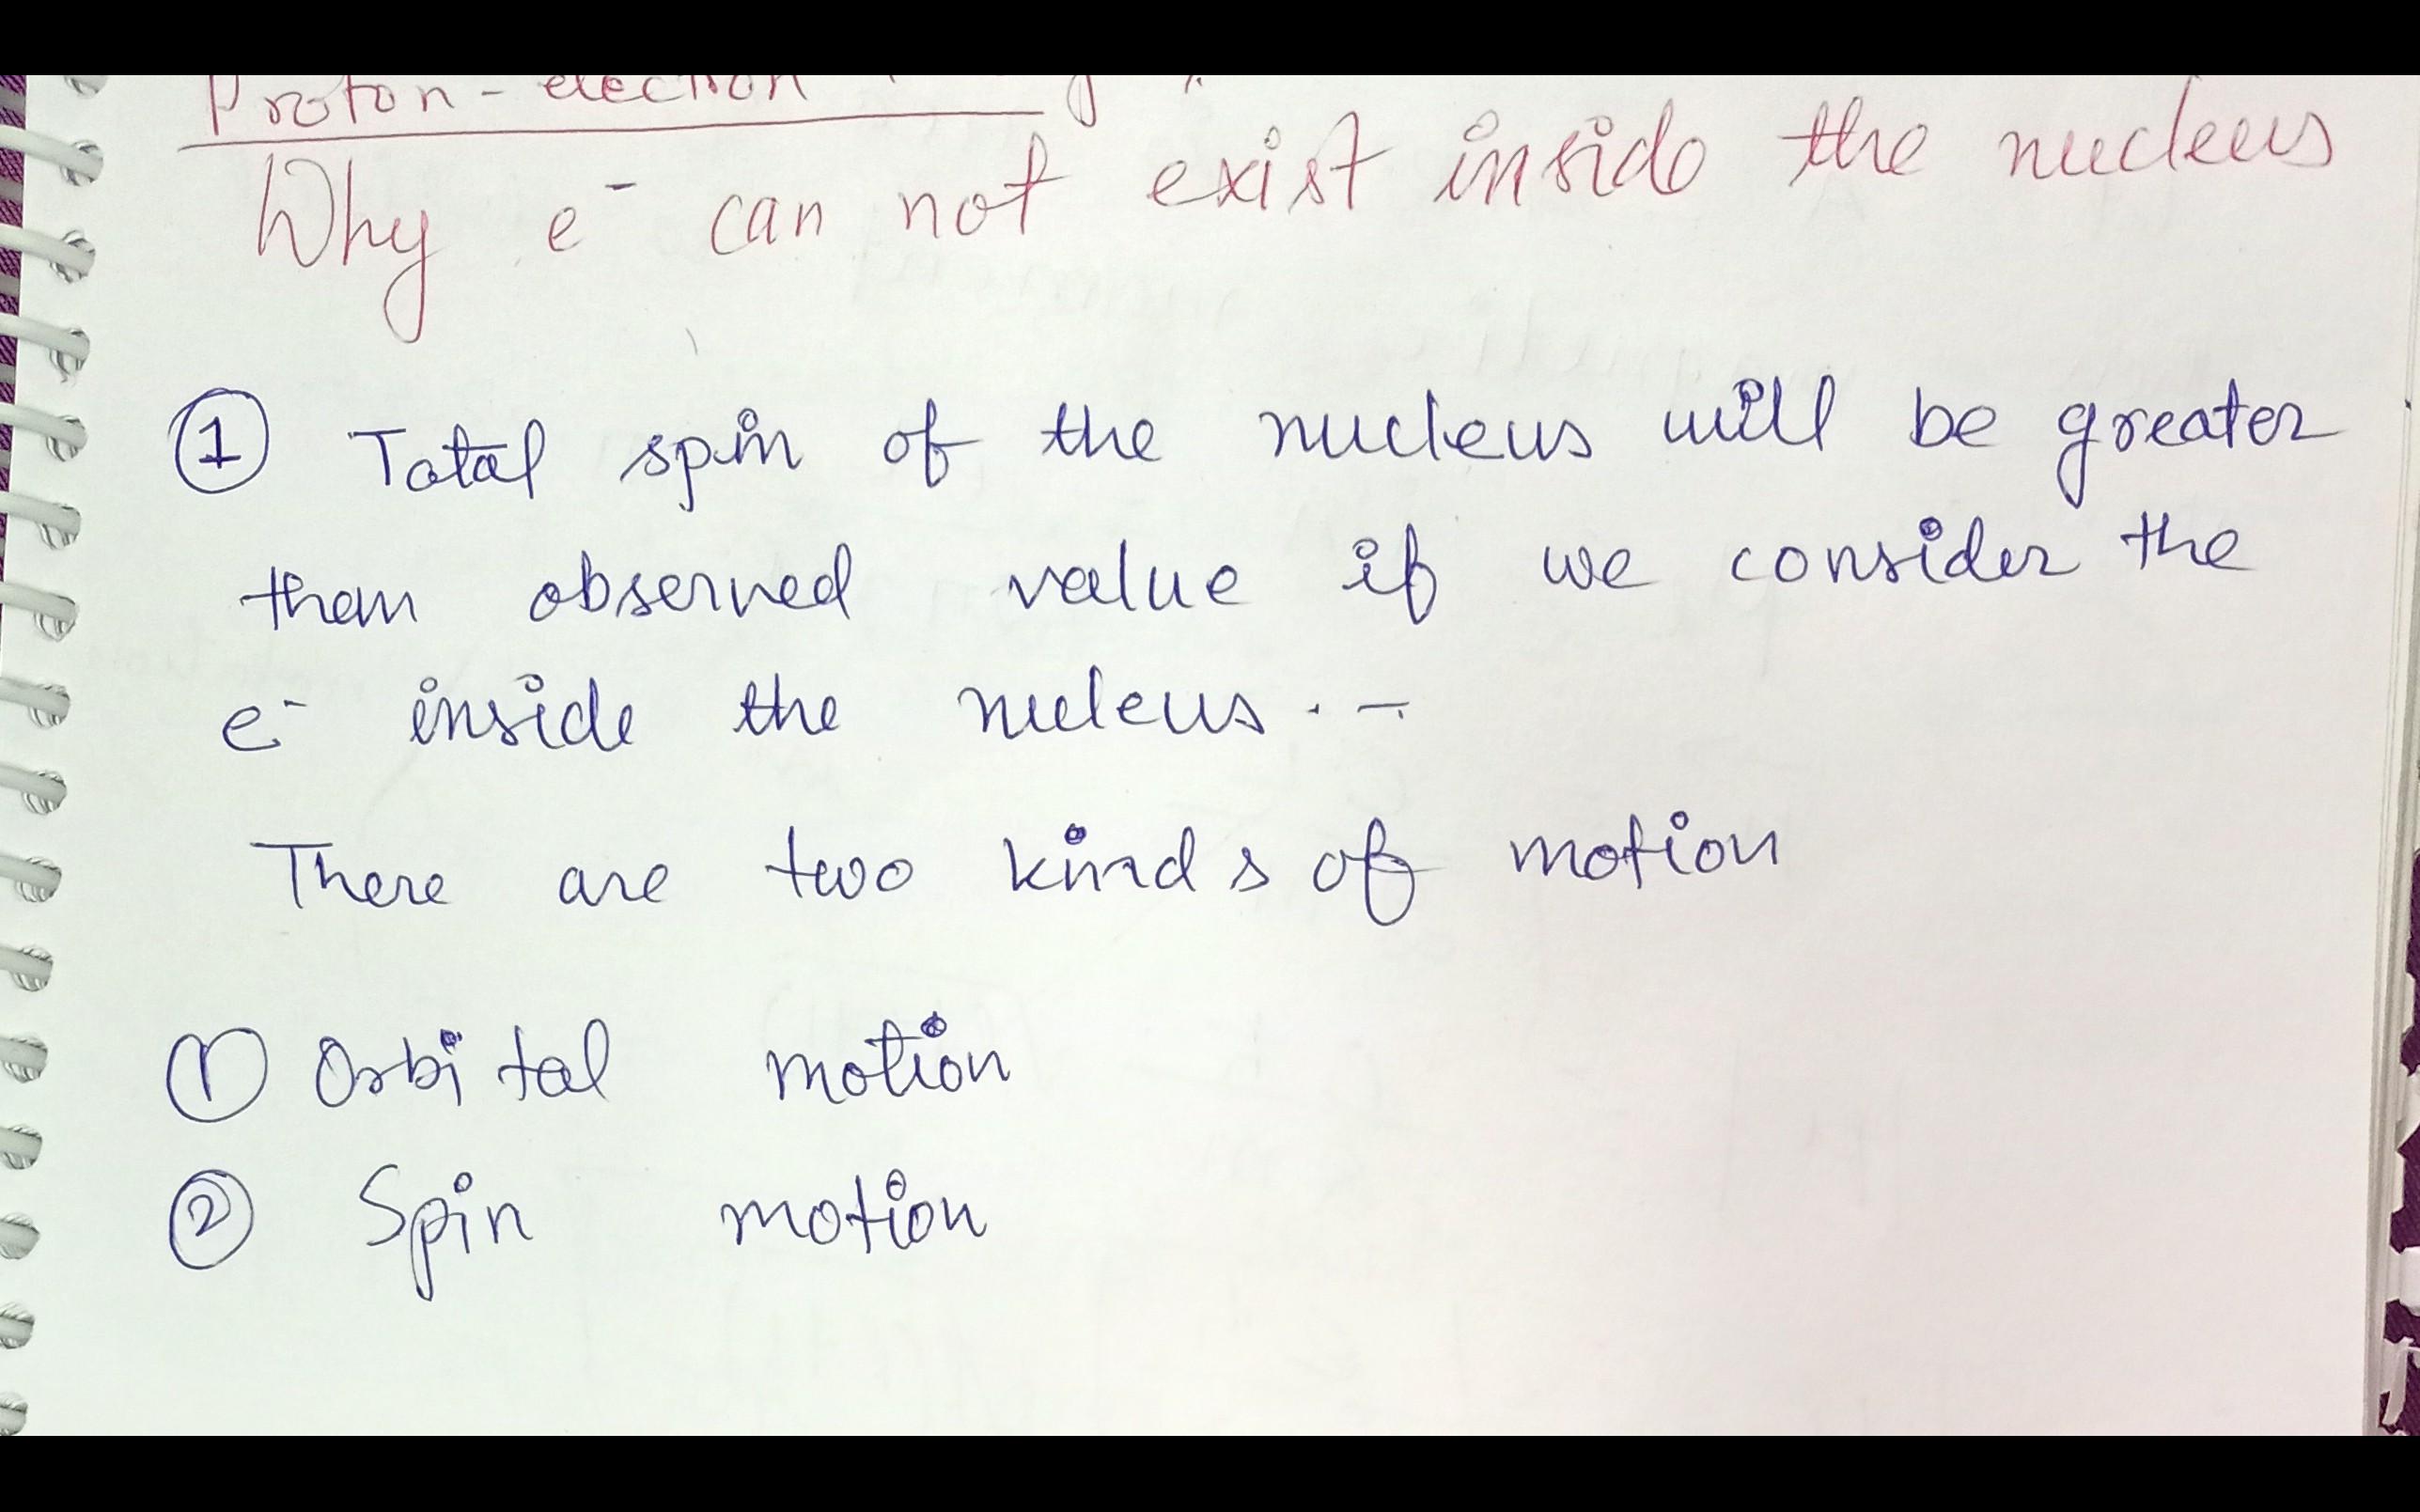 Proton-electron
Why e⁻ can not exist inside the nucleus
① Total spin of the nucleus will be greater
than observed value if we consider the
e⁻ inside the nucleus . –
There are two kinds of motion
① Orbital motion
② Spin motion